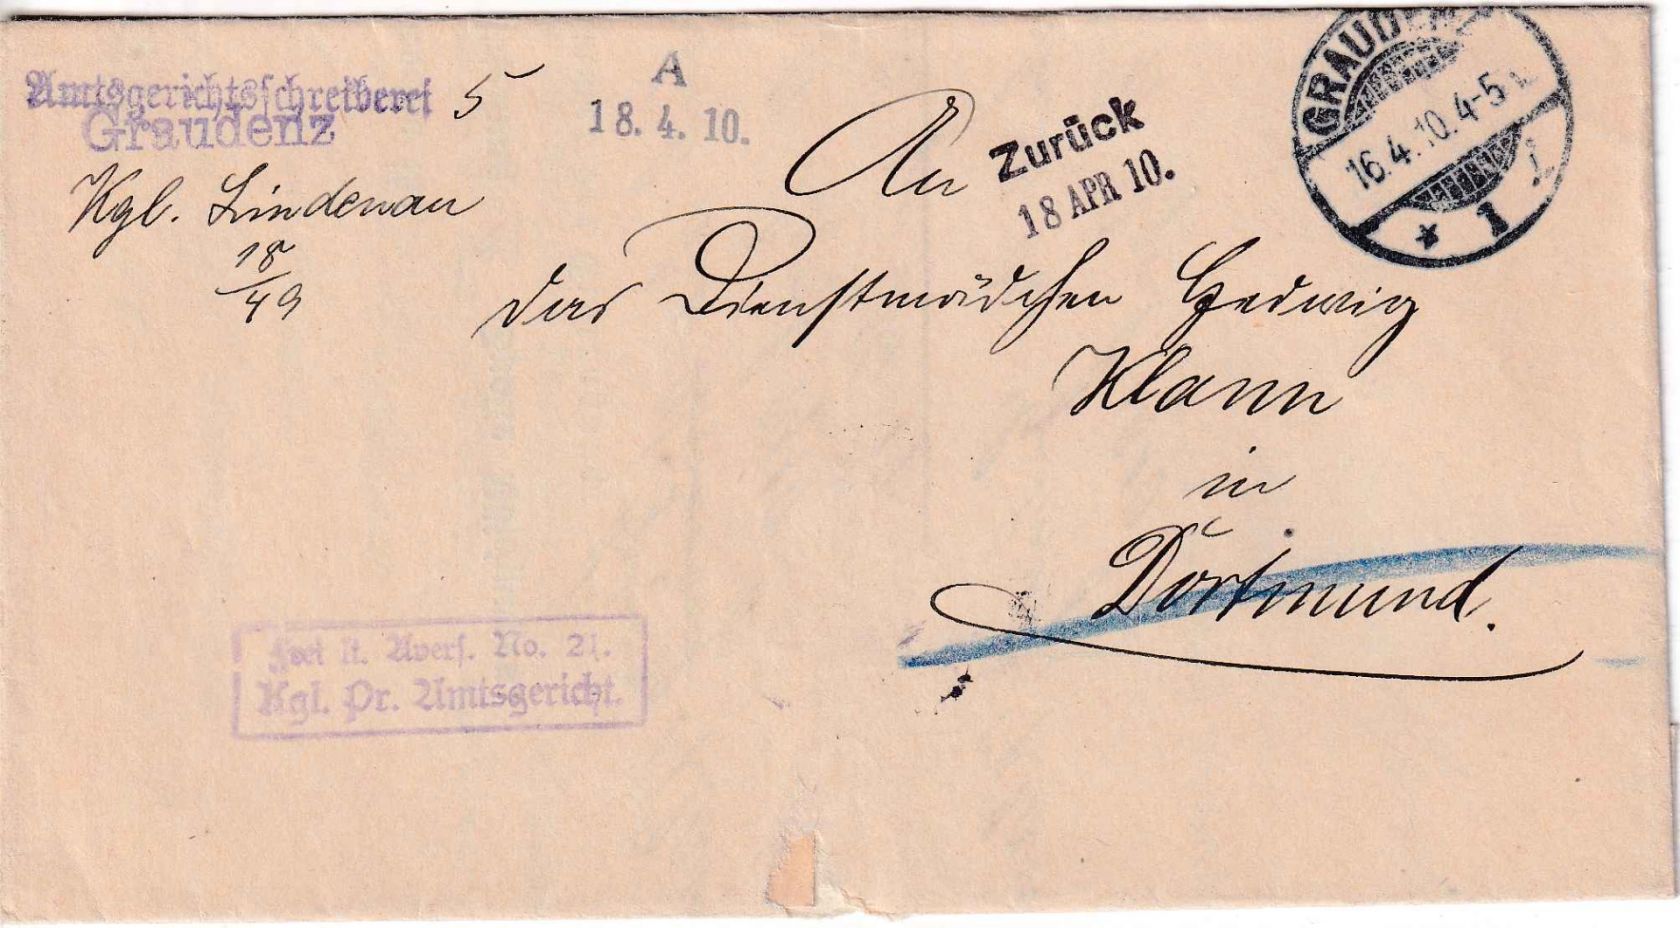 Amtsgerichtsschreiberei 5
Graudenz
Kgl. Lindenau
18/49
A
18. 4. 10.
An
Zurück
18 APR 10.
GRAUDENZ
16.4.10.4-5
* 1
das Dienstmädchen Hedwig
Klann
in
Dortmund.
Frei lt. Avers. No. 21.
Kgl. Pr. Amtsgericht.